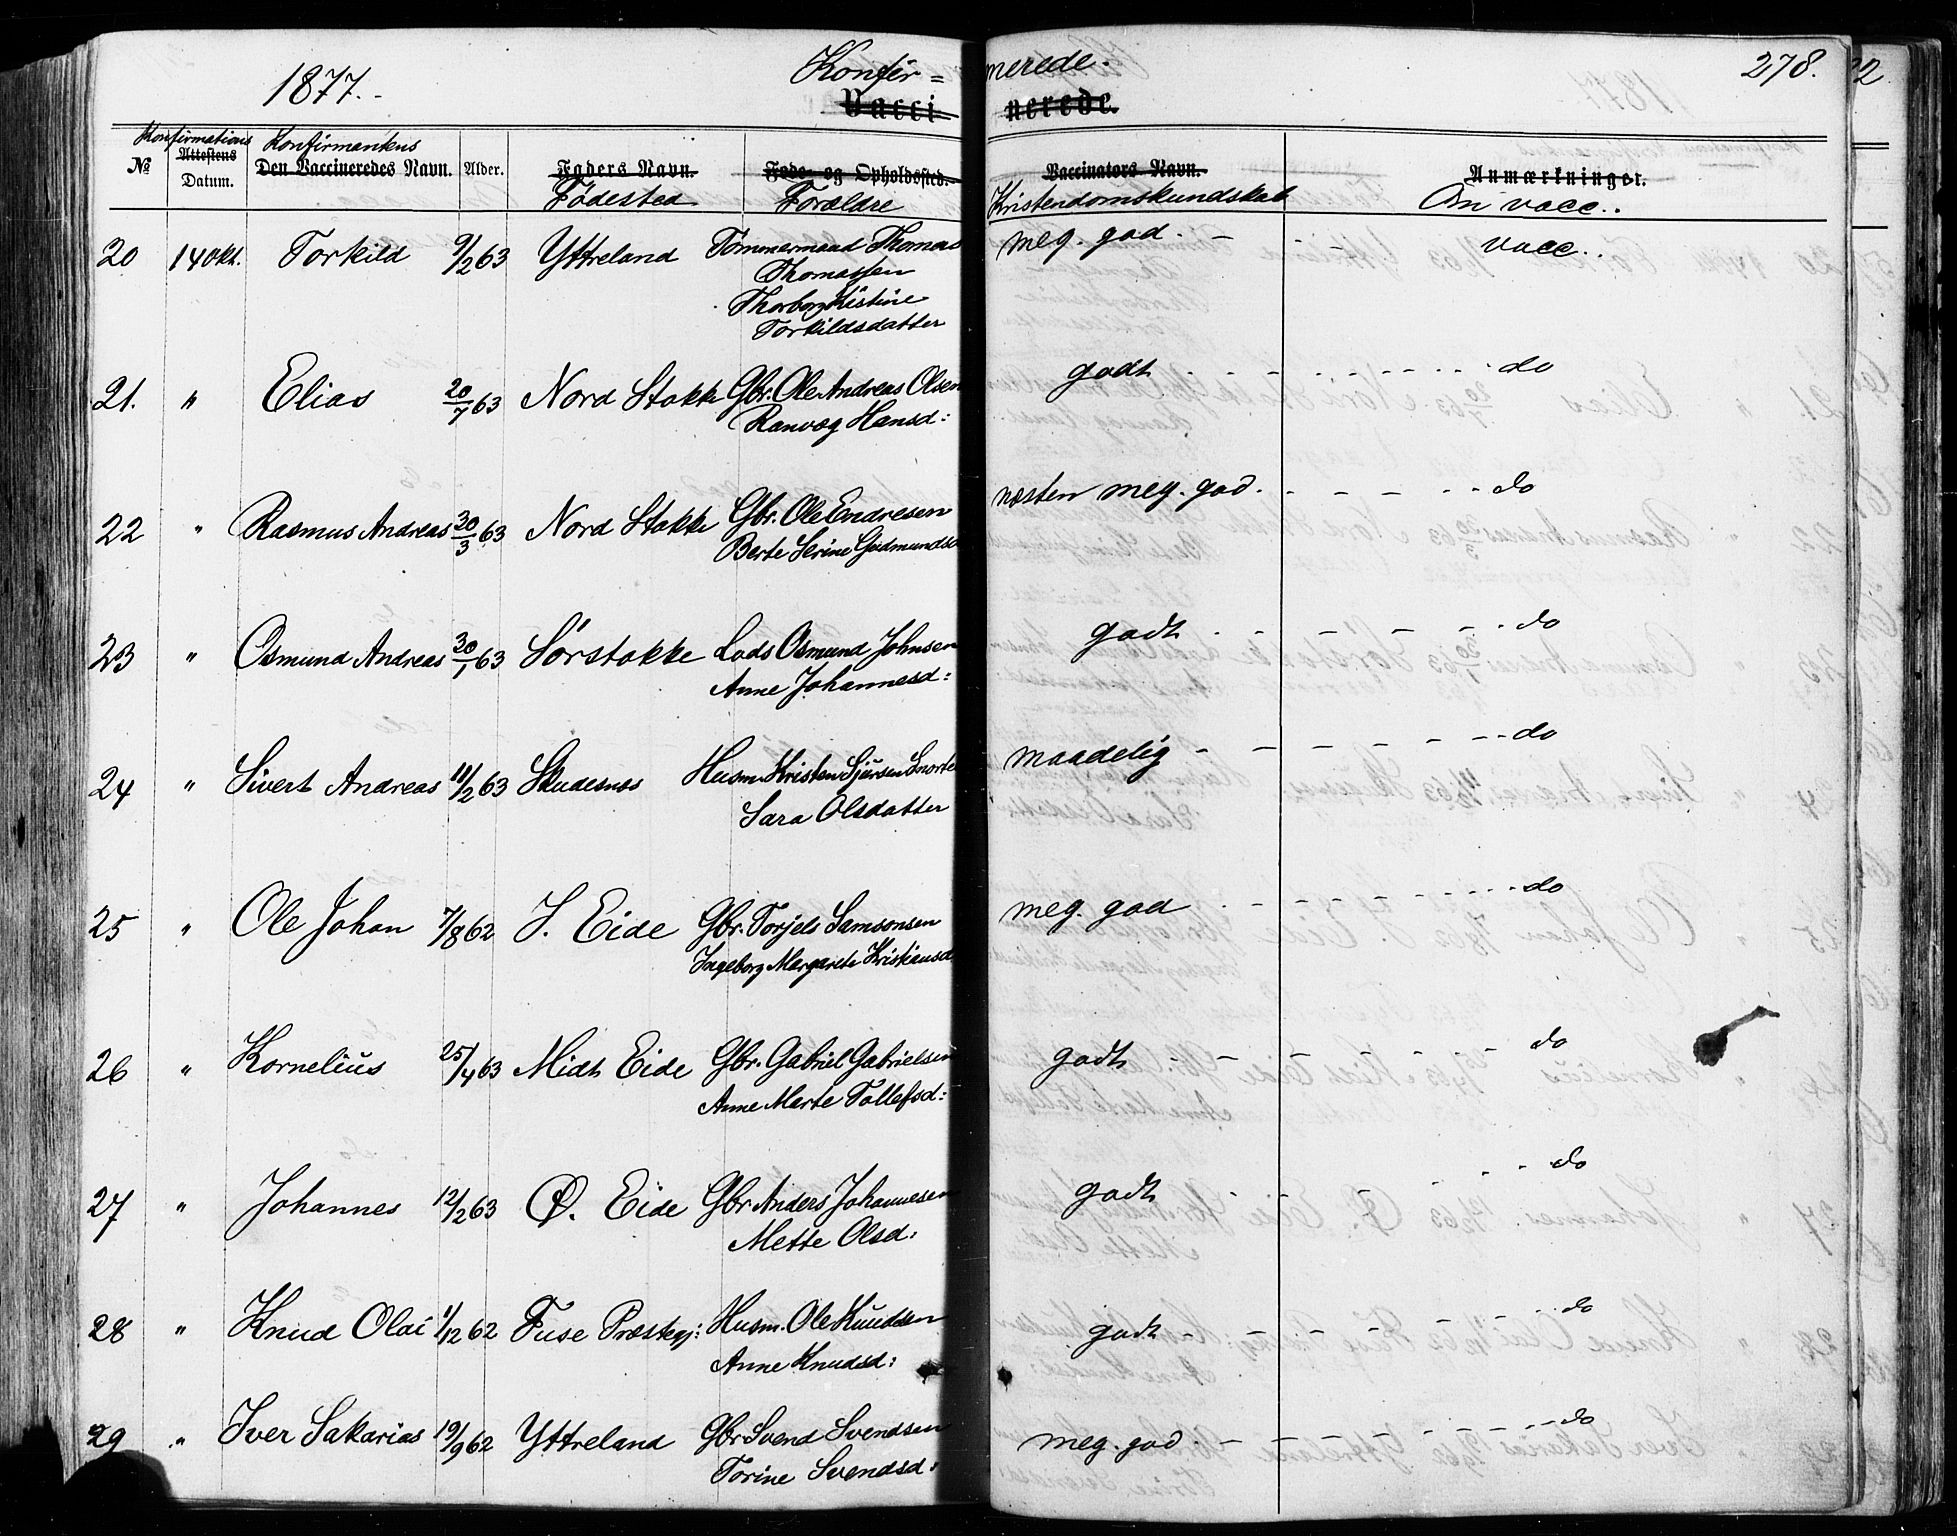 1877.-
Konfir=
merede.
278.
22
Vacci
nerede.
Konfirmations
Konfirmantens
№
Attestens
Datum.
Den Vaccineredes Navn.
Alder.
Faders Navn.
Fødested
Føde- og Opholdssted.
Forældre
Vaccinators Navn.
Kristendomskundskab
Anmærkninger.
Om vacc..
20 14 Okt. Torkild 9/2 63 Yttreland Tømmermand Thomas meg. god. - vacc..
Thomassen
Thorborg Kistine
Torkildsdatter
21. " Elias 20/7 63 Nord Stokke Gbr. Ole Andreas Olsen godt - - - - - do
Ranvæg Hansd:
22 " Rasmus Andreas 30/3 63 Nord Stokke Gbr. Ole Endresen næsten meg. god. - - - - do
Berte Serine Gudmundsd
23 " Osmund Andreas 30/1 63 Sørstokke Lods Osmund Johnsen godt - - - - - do
Anne Johannesd:
24 " Sivert Andreas 11/2 63 Skudesnes Husm. Kristen Sjursen Snorte maadelig - - - - - do
Sara Olsdatter
25 " Ole Johan 7/8 62 I. Eide Gbr. Torjels Samsonsen meg. god - - - - - do
Ingeborg Margarete Kristiansd
26 " Kornelius 25/4 63 Midt Eide Gbr. Gabriel Gabrielsen godt - - - - - do
Anne Marte Tollefsd:
27 " Johannes 12/2 63 Ø. Eide Gbr Anders Johannesen godt - - - - do
Mette Olsd:
28 " Knud Olai 1/12 62 Fuse Præstegj: Husm. Ole Knudsen godt - - - do
Anne Knudsd:
29 " Iver Sakarias 19/9 62 Yttreland Gbr Svend Svendsen meg. god. - - - - - do
Torine Svendsd: